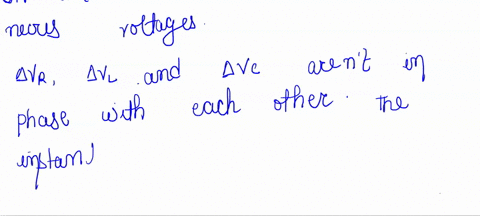 neous voltages.
ΔVR, ΔVL and ΔVC aren't in
phase with each other. The
instan